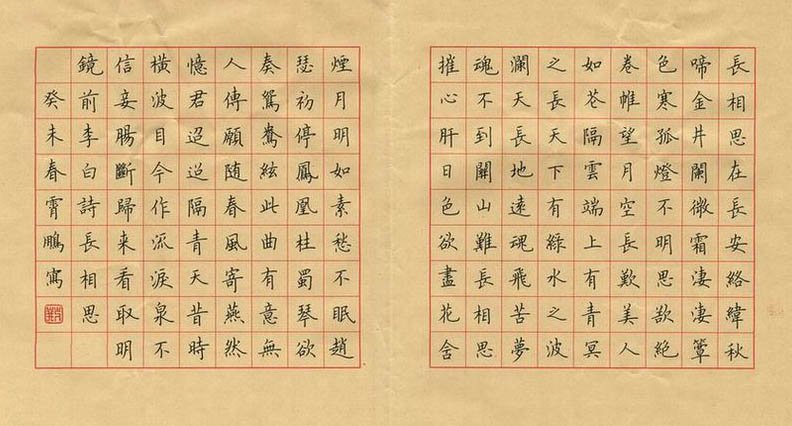 長相思在長安絡緯秋
啼金井闌微霜淒淒簟
色寒孤燈不明思欲絕
卷帷望月空長歎美人
如花隔雲端上有青冥
之長天下有綠水之波
瀾天長地遠魂飛苦夢
魂不到關山難長相思
摧心肝日色欲盡花含
煙月明如素愁不眠趙
瑟初停鳳凰柱蜀琴欲
奏鴛鴦絃此曲有意無
人傳願随春風寄燕然
憶君迢迢隔青天昔時
橫波目今作流淚泉不
信妾腸斷歸來看取明
鏡前李白詩長相思
癸未春霄鵬寫